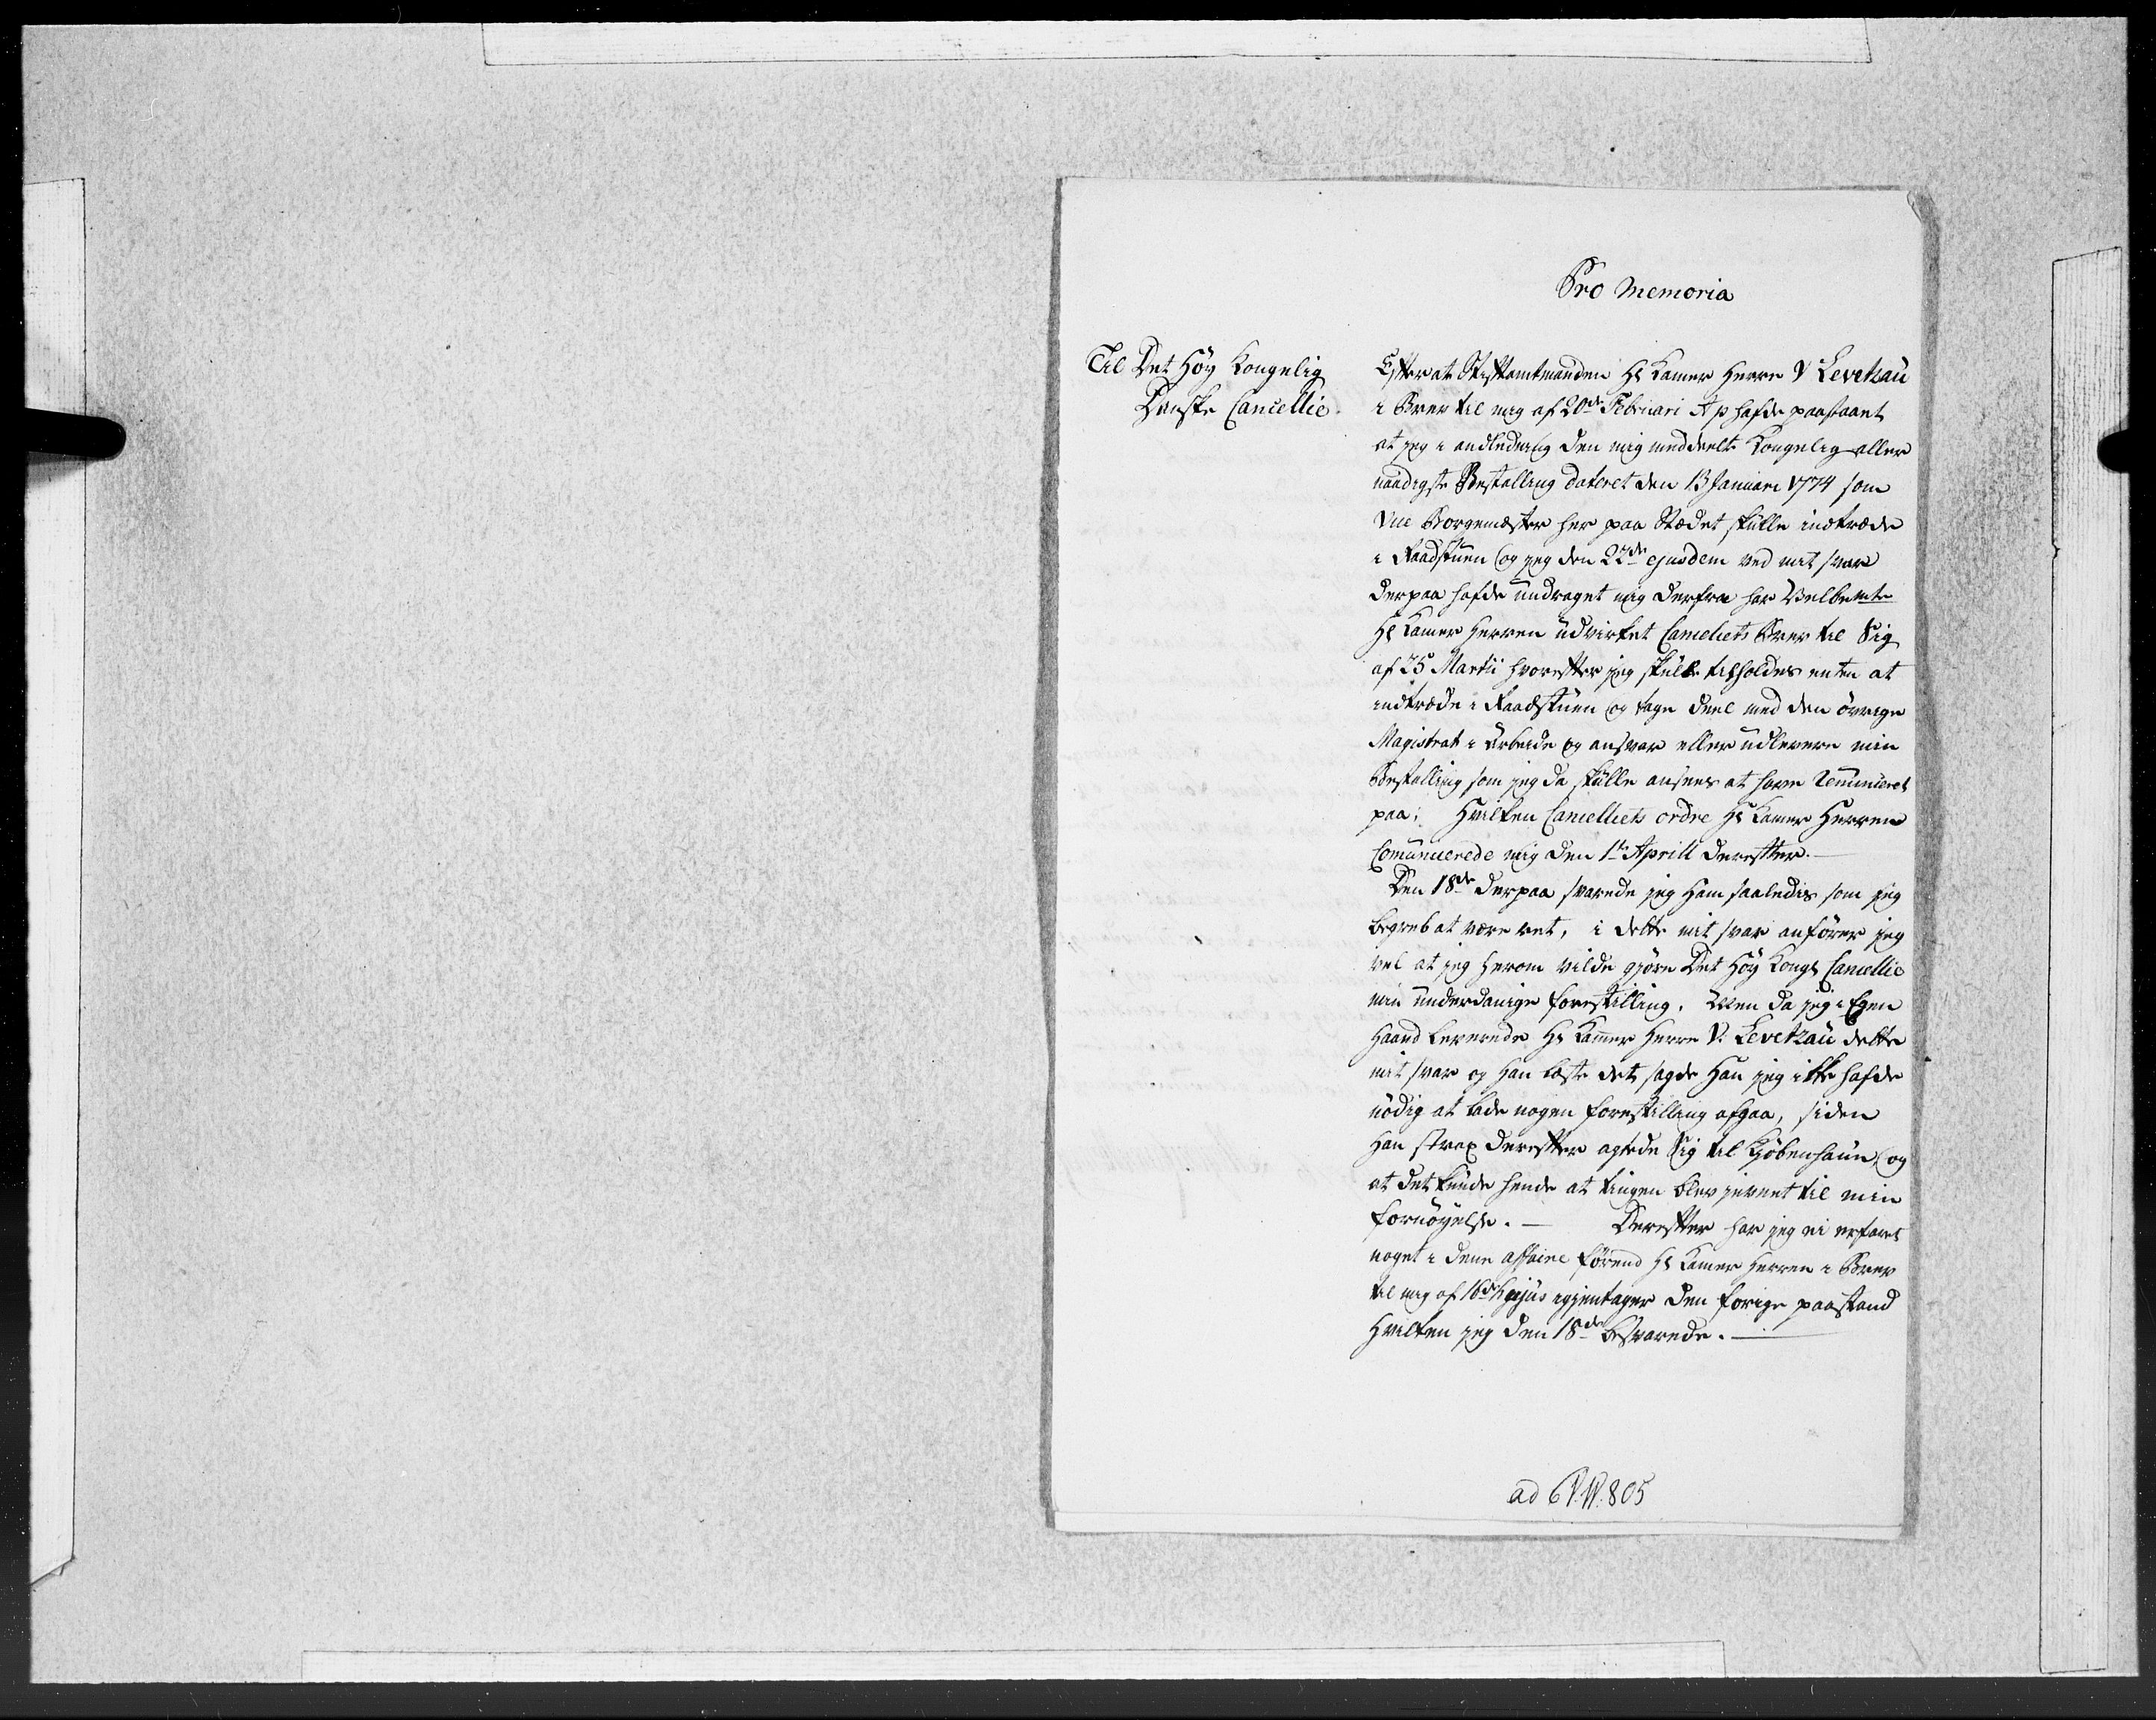 Pro Memoria
Til Det Høy Kongelig
Danske Cancellie.
Efter at Stiftamtmanden Hr Kamer Herre V Levetzau
i Brev til mig af 20de Februari A p hafde paastaaet
at jeg i andledning den mig meddeelte Kongelig aller
naadigste Bestalling dateret den 13 Januari 1774 som
Vice Borgemæster her paa Stædet skulle indtræde
i Raadstuen og jeg den 22de ejusdem ved mit svar
derpaa hafde undraget mig derfra har Velbemte
Hr Kamer Herren udvirket Canceliets Brev til Sig
af 25 Martii hvorefter jeg skulle tilholdes enten at
indtræde i Raadstuen og tage deel med den øvrige
Magistrat i Arbeide og ansvar eller udlevere min
Bestalling som jeg da skulle ansees at have Renunceret
paa; Hvilken Cancelliets ordre Hr Kamer Herren
Comunicerede mig den 1te Aprill derefter.
Den 18de derpaa svarede jeg Ham saaledes som jeg
begreb at være ret, i dette mit svar anfører jeg
vel at jeg herom vilde gjøre Det Høy Kongl Cancellie
min underdanige forestilling. Men da jeg i Egen
haand leverede Hr Kamer Herre V. Levetzau dette
mit svar og Han læste det, sagde Han jeg ikke hafde
nødig at lade nogen forestilling afgaa, siden
Han strax derefter agtede Sig til Kjøbenhaun, og
at det kunde hende at tingen blev jevnet til min
fornøyelse. — Derefter har jeg ei erfaret
noget i denne affaire førend Hr Kamer Herren i Brev
til mig af 16de hujus igjentager den forige paastand
Hvilken jeg den 18de besvarede. —
ad 805